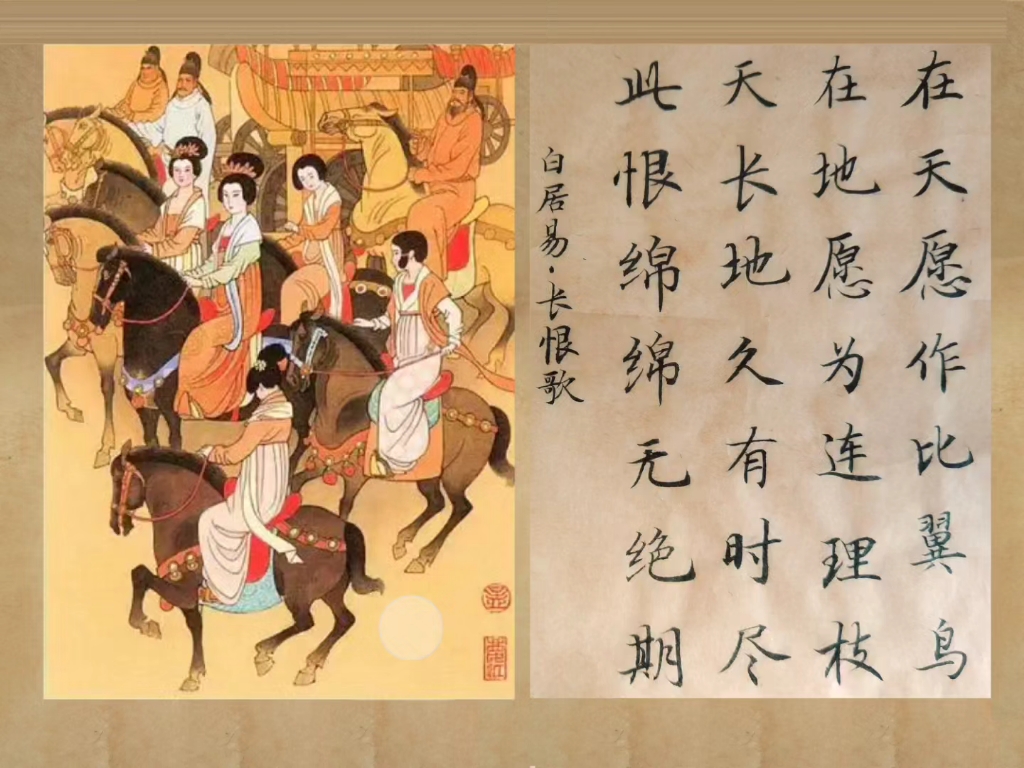 在天愿作比翼鸟
在地愿为连理枝
天长地久有时尽
此恨绵绵无绝期
白居易·长恨歌